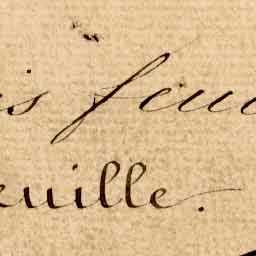 is feu
euille.